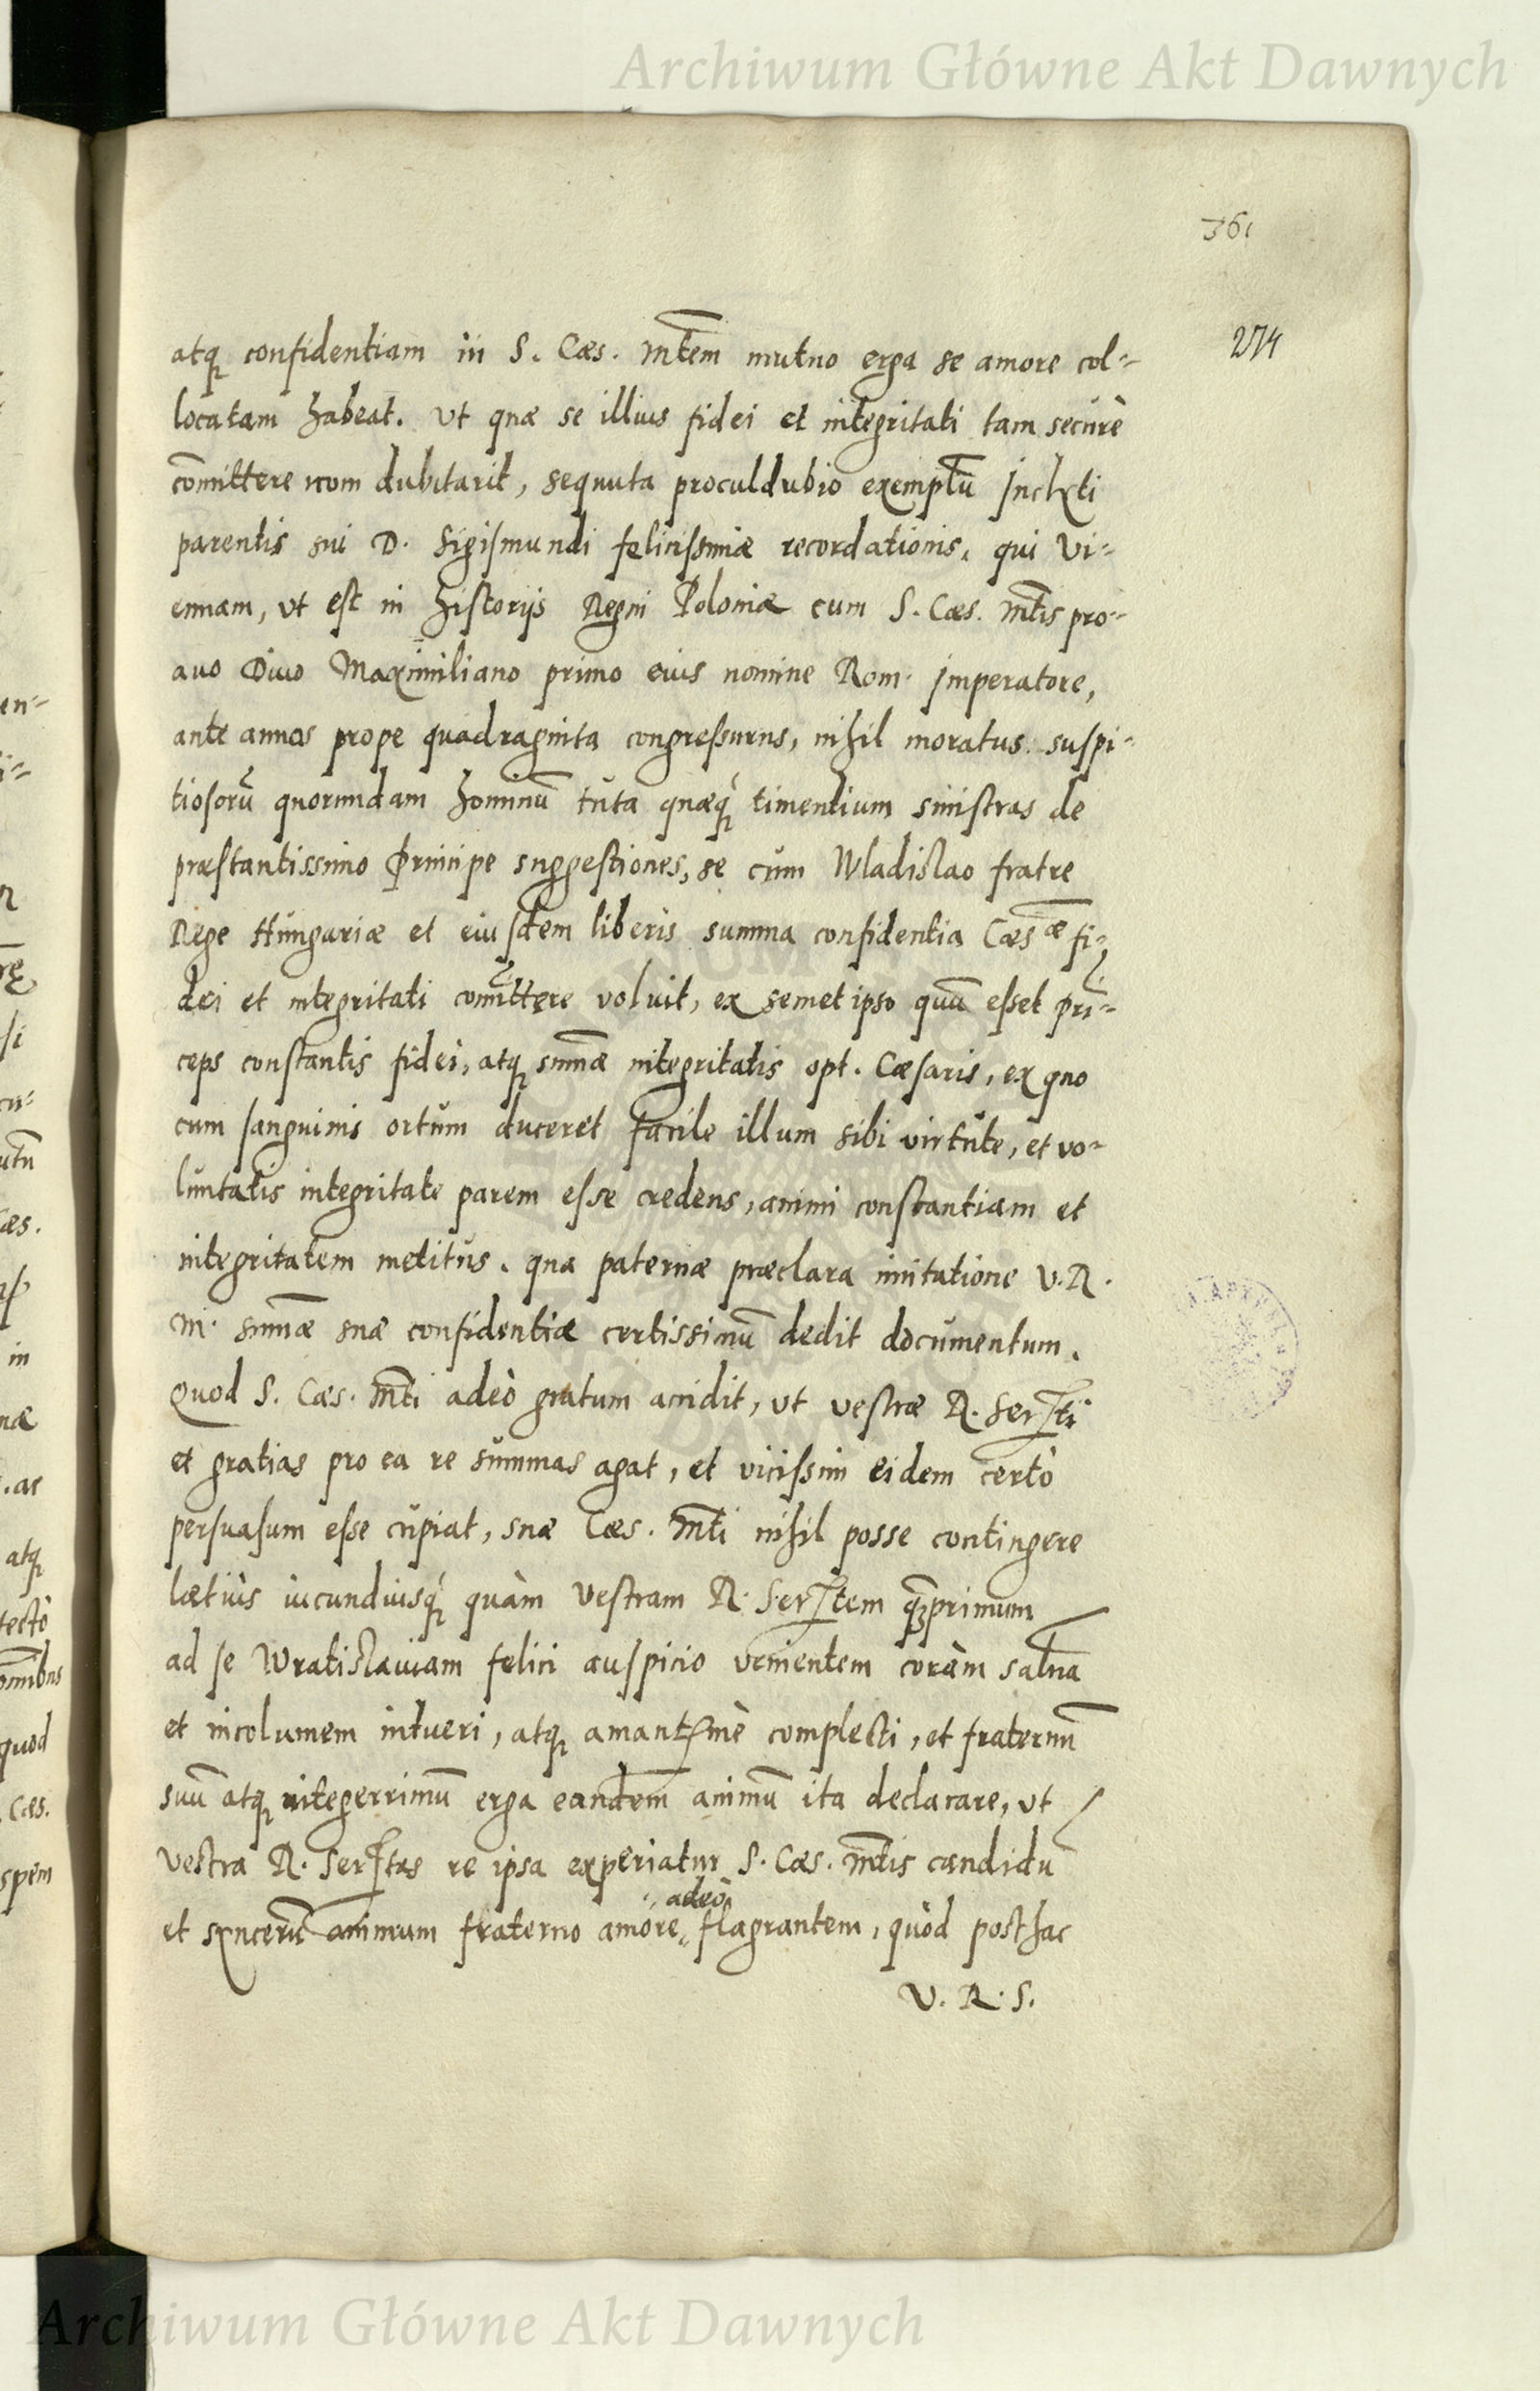 Archiwum Główne Akt Dawnych
361
274
atq confidentiam in S. Cæs. Mtem mutuo erga se amore col-
locatam habeat. Ut quæ se illius fidei et integritati tam securè
com̄ittere non dubitarit, sequuta proculdubio exemplū Inclyti
parentis sui D. Sigismundi felicissimæ recordationis, qui Vi-
ennam, ut est in historijs Regni Poloniæ cum S. Cæs. Mtis pro-
auo Diuo Maximiliano primo eius nomine Rom. Imperatore,
ante annos prope quadraginta congressurus, nihil moratus suspi-
tiosorū quorundam hominū tuta quæq timentium sinistras de
præstantissimo Principe suggestiones, se cum Wladislao fratre
Rege Hungariæ et eiusdem liberis summa confidentia Cæsæ fi-
dei et integritati com̄ittere voluit, ex semet ipso quū esset Prin-
ceps constantis fidei, atq sum̄æ integritatis opt. Cæsaris, ex quo
cum sanguinis ortum duceret facile illum sibi virtute, et vo-
luntatis integritate parem esse credens, animi constantiam et
integritatem metitus. qua paternæ præclara imitatione V. R.
M. sum̄æ suæ confidentiæ certissimū dedit documentum.
Quod S. Cæs. Mti adeò gratum accidit, ut vestræ R. Serti
et gratias pro ea re summas agat, et vicissim eidem certò
persuasum esse cupiat, suæ Cæs. Mti nihil posse contingere
lætius iucundiusq quàm Vestram R. Sertem q̄primum
ad se Wratislauiam felici auspicio venientem coràm saluā
et incolumem intueri, atq amantsmè complecti, et fraternū
suū atq integerrimū erga eandem animū ita declarare, ut
Vestra R. Sertas re ipsa experiatur S. Cæs. Mtis candidū
adeò
et syncerū animum fraterno amore flagrantem, quòd posthac
V. R. S.
Archiwum Główne Akt Dawnych